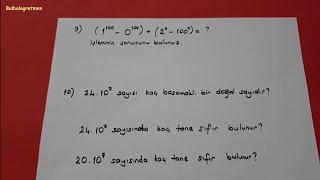 Bulbulogretmen
9) (1¹⁰⁰ - 0¹⁰⁰) + (2⁰ - 100⁰) = ?
işleminin sonucunu bulunuz.
10) 24.10⁷ sayısı kaç basamaklı bir doğal sayıdır?
24.10⁷ sayısında kaç tane sıfır bulunur?
20.10⁷ sayısında kaç tane sıfır bulunur?